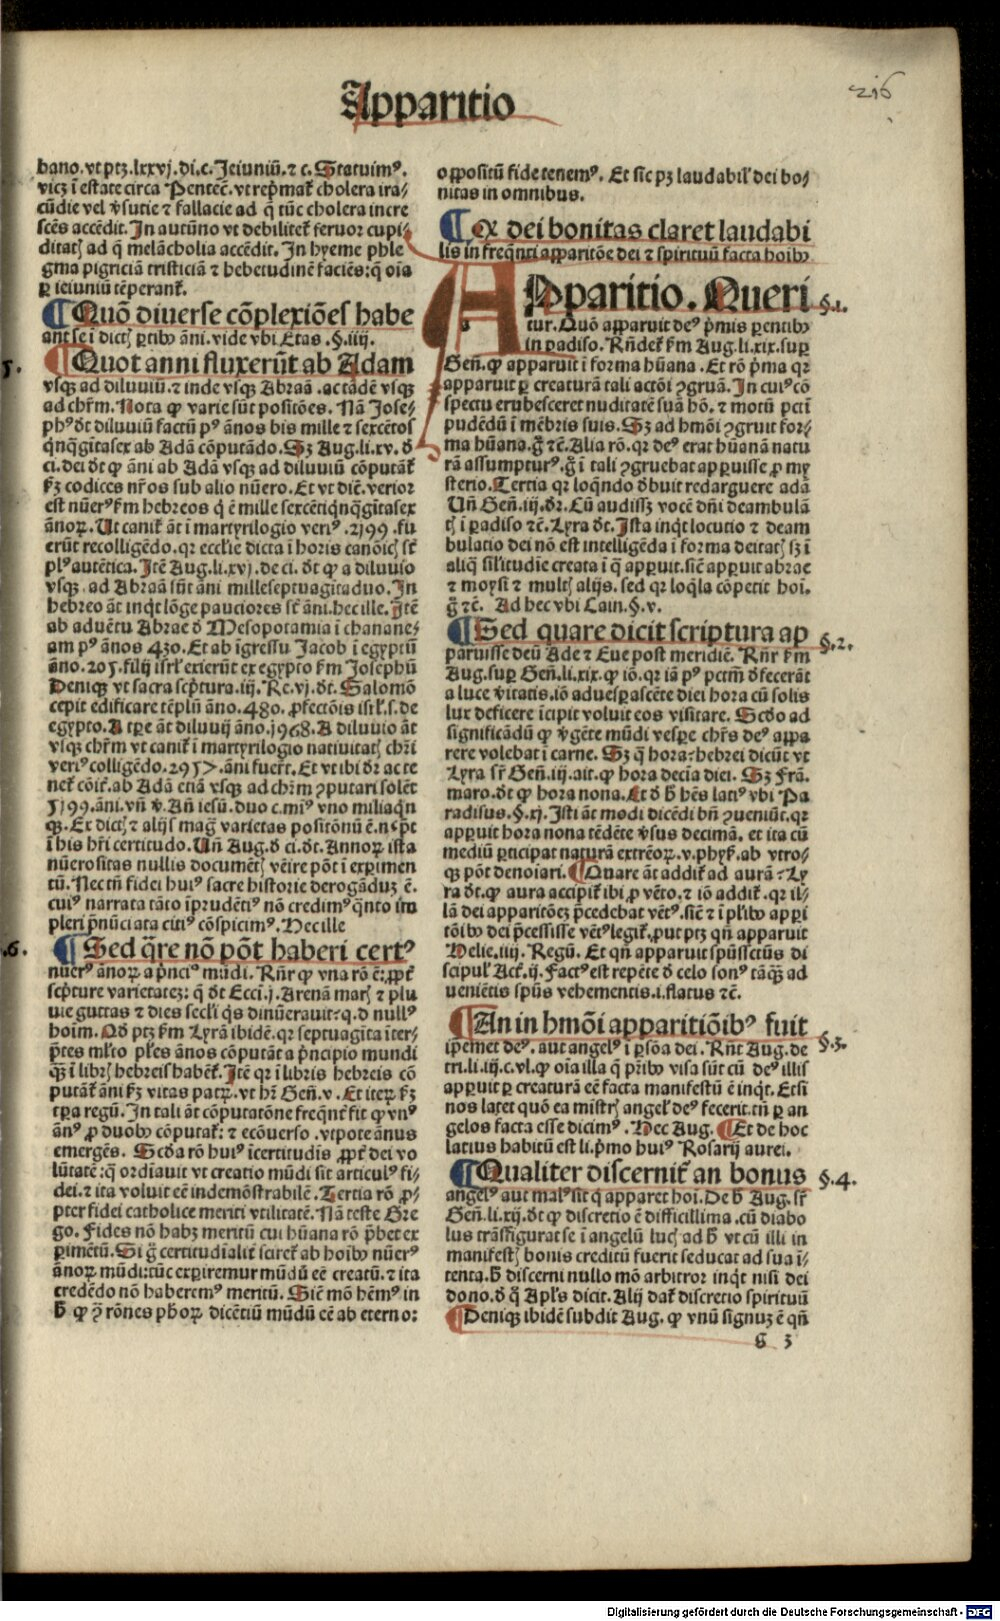 Apparitio
216
bano. vt ptꝫ. lxxvj. di. c. Jeiuniū. ⁊ c. Statuimꝰ.
vicꝫ ī estate circa Penteč. vt rep̄mat᷑ cholera ira-
cūdie vel v̄sutie ⁊ fallacie ad q̄ tūc cholera incre
scēs accēdit. In autūno vt debilitet᷑ feruor cupi-
ditatꝭ ad q̄ melācholia accēdit. In hyeme phle
gma pigriciā tristiciā ⁊ hebetudinē faciēs: q̄ oīa
ꝑ ieiuniū tēperant᷑.
¶ Quō diuerse cōplexiōes habe
ant se ī dictꝭ ꝑtibꝰ āni. vide vbi Etas. §. iiij.
5.
¶ Quot anni fluxerūt ab Adam
vsqꝫ ad diluuiū. ⁊ inde vsqꝫ Abraā. ac tādē vsqꝫ
ad chr̄m. Nota ꝙ varie sūt positōes. Nā Jose-
phꝰ d̄t diluuiū factū pꝰ ānos bis mille ⁊ sexcētos
q̄nq̄gītasex ab Adā cōputādo. Sꝫ Aug. li. xv. d̄
ci. dei d̄t ꝙ āni ab Adā vsqꝫ ad diluuiū cōputāt᷑
ẜm codices nr̄os sub alio nūero. Et vt diē. verior
est nūerꝰ ẜm hebreos q̄ ē mille sexcētiq̄nq̄gītasex
ānoꝝ. Ut canit᷑ āt ī martyrilogio verꝰ. 2199. fu
erūt recolligēdo. qr eccl̄ie dicta ī horis canōicꝭ sūt
plꝰ autētica. Itē Aug. li. xvj. de ci. d̄t ꝙ a diluuio
vsqꝫ. ad Abraā sūt āni milleseptuagītaduo. In
hebreo āt inq̄t lōge pauciores sūt āni. hec ille. Itē
ab aduētu Abrae d̄ Mesopotamia ī chanane-
am pꝰ ānos 430. Et ab īgressu Jacob ī egyptū
āno. 205. filij isrl̄ exierūt ex egypto ẜm Josephū
Deniqꝫ vt sacra scp̄tura. iij. Re. vj. d̄t. Salomō
cepit edificare tēplū āno. 480. ꝓfectōis isrl̄. s. de
egypto. A tp̄e āt diluuij āno. 1968. A diluuio āt
vsqꝫ chr̄m vt canit᷑ ī martyrilogio natiuitatꝭ chr̄i
verꝰ colligēdo. 2957. āni fuer̄t. Et vt ibi d̄r ac te
net᷑ cōit᷑. ab Adā etiā vsqꝫ ad chr̄m ꝯputari solēt
5199. āni. vn̄ v̄. An̄ iesū. duo c. mīꝰ vno milia q̄n
qꝫ. Ex dictꝭ ⁊ alijs maḡ varietas positōnū ē. nec pōt
ī his hr̄i certitudo. Un̄ Aug. d̄ ci. d̄t. Annoꝝ ista
nūerositas nullis documētꝭ vēire pōt ī experimen
tū. Nec tn̄ fidei huiꝰ sacre historie derogādū ē.
cuiꝰ narrata tāto īprudētiꝰ nō credimꝰ q̄nto im
pleri p̄nūciata citiꝰ cōspicimꝰ. Hec ille
.6.
¶ Sed q̄re nō pōt haberi certꝰ
nūerꝰ ānoꝝ a p̄nciꝰ mūdi. Rn̄r ꝙ vna rō ē: ꝓpt᷑
scp̄ture varietatez: q̄ d̄t Ecci. j. Arenā marꝭ ⁊ plu
uie guttas ⁊ dies secl̄i q̄s dinūerauit: q. d. nullꝰ
hoīm. Qd̄ ptꝫ ẜm Lyrā ibidē. qr septuagīta īter-
p̄tes ml̄to pl̄es ānos cōputāt a p̄ncipio mundi
qꝫ ī librꝭ hebreis habet᷑. Itē qr ī libris hebreis cō
putāt᷑ āni ẜm vitas patꝝ. vt hr̄ Gen̄. v. Et iteꝝ ẜm
tp̄a regū. In tali āt cōputatōne freq̄nt᷑ fit ꝙ vnꝰ
ānꝰ ꝓ duobꝰ cōputat᷑: ⁊ ecōuerso. vtpote ānus
emergēs. Scd̄a rō huiꝰ īcertitudis ꝓpt᷑ dei vo
lūtatē: q̄ ordiauit vt creatio mūdi sit articulꝰ fi-
dei. ⁊ ita voluit eē indemōstrabilē. Tertia rō ꝓ-
pter fidei catholice meriti vtilitatē. Nā teste Gre
go. Fides nō habꝫ meritū cui hūana rō p̄bet ex
ꝑimētū. Si ḡ certitudīalit᷑ sciret᷑ ab hoībꝰ nūerꝰ
ānoꝝ mūdi: tūc exꝑiremur mūdū eē creatū. ⁊ ita
credēdo nō haberemꝰ meritū. Sic̄ mō hēmꝰ in
h̄ ꝙ ꝯ̄ rōnes ph̄oꝝ dicētiū mūdū eē ab eterno:
oppositū fide tenemꝰ. Et sic pꝫ laudabil̓ dei bo-
nitas in omnibus.
¶ Ex dei bonitas claret laudabi
lis in freq̄nti apparitōe dei ⁊ spirituū facta hoībꝰ
APparitio. Queri
§.1.
tur. Quō apparuit deꝰ p̄mis ꝑentibꝰ
in ꝑadiso. Rn̄det᷑ ẜm Aug. li. xix. suꝑ
Gen̄. ꝙ apparuit ī forma hūana. Et rō p̄ma qr
apparuit ꝑ creaturā tali actōi ꝯgruā. In cuiꝰ cō
spectu erubesceret nuditatē suā hō. ⁊ motū pctī
pudēdū ī mēbris suis. Sꝫ ad hmōi ꝯgruit for-
ma hūana. ḡ ⁊c̄. Alia rō. qr deꝰ erat hūanā natu
rā assumpturꝰ. ḡ ī tali ꝯgruebat apꝑuisse ꝓ my
sterio. Tertia qr loq̄ndo d̄buit redarguere adā
Un̄ Gen̄. iij. d̄r. Cū audissꝫ vocē dn̄i deambulā
tꝭ ī ꝑadiso ⁊c̄. Lyra d̄t. Ista inq̄t locutio ⁊ deam
bulatio dei nō est intelligēda ī forma deitatꝭ sꝫ ī
aliq̄ sil̓itudīe creata ī q̄ apꝑuit. sic̄ apꝑuit abrae
⁊ moysi ⁊ multꝭ alijs. sed qr loq̄la cōpetit hoī.
ḡ ⁊c̄. Ad hec vbi Cain. §. v.
¶ Sed quare dicit scriptura ap
§.2.
paruisse deū Ade ⁊ Eue post meridiē. Rn̄r ẜm
Aug. suꝑ Gen̄. li. xix. ꝙ iō. qr iā pꝰ pctm̄ d̄fecerāt
a luce v̄itatis. iō aduesꝑascēte diei hora cū solis
lux deficere īcipit voluit eos visitare. Scd̄o ad
significādū ꝙ v̄gēte mūdi vesꝑe chr̄s deꝰ appa
rere volebat ī carne. Sꝫ q̄ hora: hebrei dicūt vt
Lyra sr̄ Gen̄. iij. ait. ꝙ hora decīa diei. Sꝫ Frā.
maro. d̄t ꝙ hora nona. Et d̄ h̄ hēs latiꝰ vbi Pa
radisus. §. xj. Isti āt modi dicēdi bn̄ ꝯueniūt. qr
apꝑuit hora nona tēdēte v̄sus decimā. et ita cū
mediū ꝑticipat naturā extrēoꝝ. v. phyẜ. ab vtro-
qꝫ pōt denoiari. ¶ Quare āt addit᷑ ad aurā: Ly
ra d̄t. ꝙ aura accipit᷑ ibi ꝓ vēto. ⁊ iō addit᷑. qr il-
lā dei apparitōeꝫ p̄cedebat vētꝰ. sic̄ ⁊ ī pl̄ibꝰ appi
tōibꝰ dei p̄cessisse vētꝰ legit᷑. ꝓut ptꝫ qn̄ apparuit
Helie. iiij. Regū. Et qn̄ apparuit spūssctūs di
scipul̓ Act᷑. ij. Factꝰ est repēte d̄ celo sonꝰ tāqꝫ ad
ueniētis spūs vehementis. i. flatus ⁊c̄.
¶ An in hmōi apparitiōibꝰ fuit
§.3.
ip̄emet deꝰ. aut angelꝰ ī ꝑsōa dei. Rn̄t Aug. de
tri. li. iij. c. vl. ꝙ oīa illa q̄ pr̄ibꝰ visa sūt cū deꝰ illis
apꝑuit ꝑ creaturā eē facta manifestū ē inq̄t. Etsi
nos latet quō ea mīstrꝭ angel̓ deꝰ fecerit. tn̄ ꝑ an
gelos facta esse dicimꝰ. Hec Aug. ¶ Et de hoc
latius habitū est li. p̄mo huiꝰ Rosarij aurei.
¶ Qualiter discernit᷑ an bonus
§.4.
angelꝰ aut malꝰ sit q̄ apparet hoī. De h̄ Aug. sr̄
Gen̄. li. xij. d̄t ꝙ discretio ē difficillima. cū diabo
lus trāsfigurat se ī angelū lucꝭ ad h̄ vt cū illi in
manifestꝭ bonis creditū fuerit seducat ad sua ī-
tenta. h̄ discerni nullo mō arbitror inq̄t nisi dei
dono. d̄ q̄ Apl̓s dicit. Alij dat᷑ discretio spirituū
¶ Deniqꝫ ibidē subdit Aug. ꝙ vnū signuꝫ ē qn̄
G 3
Digitalisierung gefördert durch die Deutsche Forschungsgemeinschaft - DFG